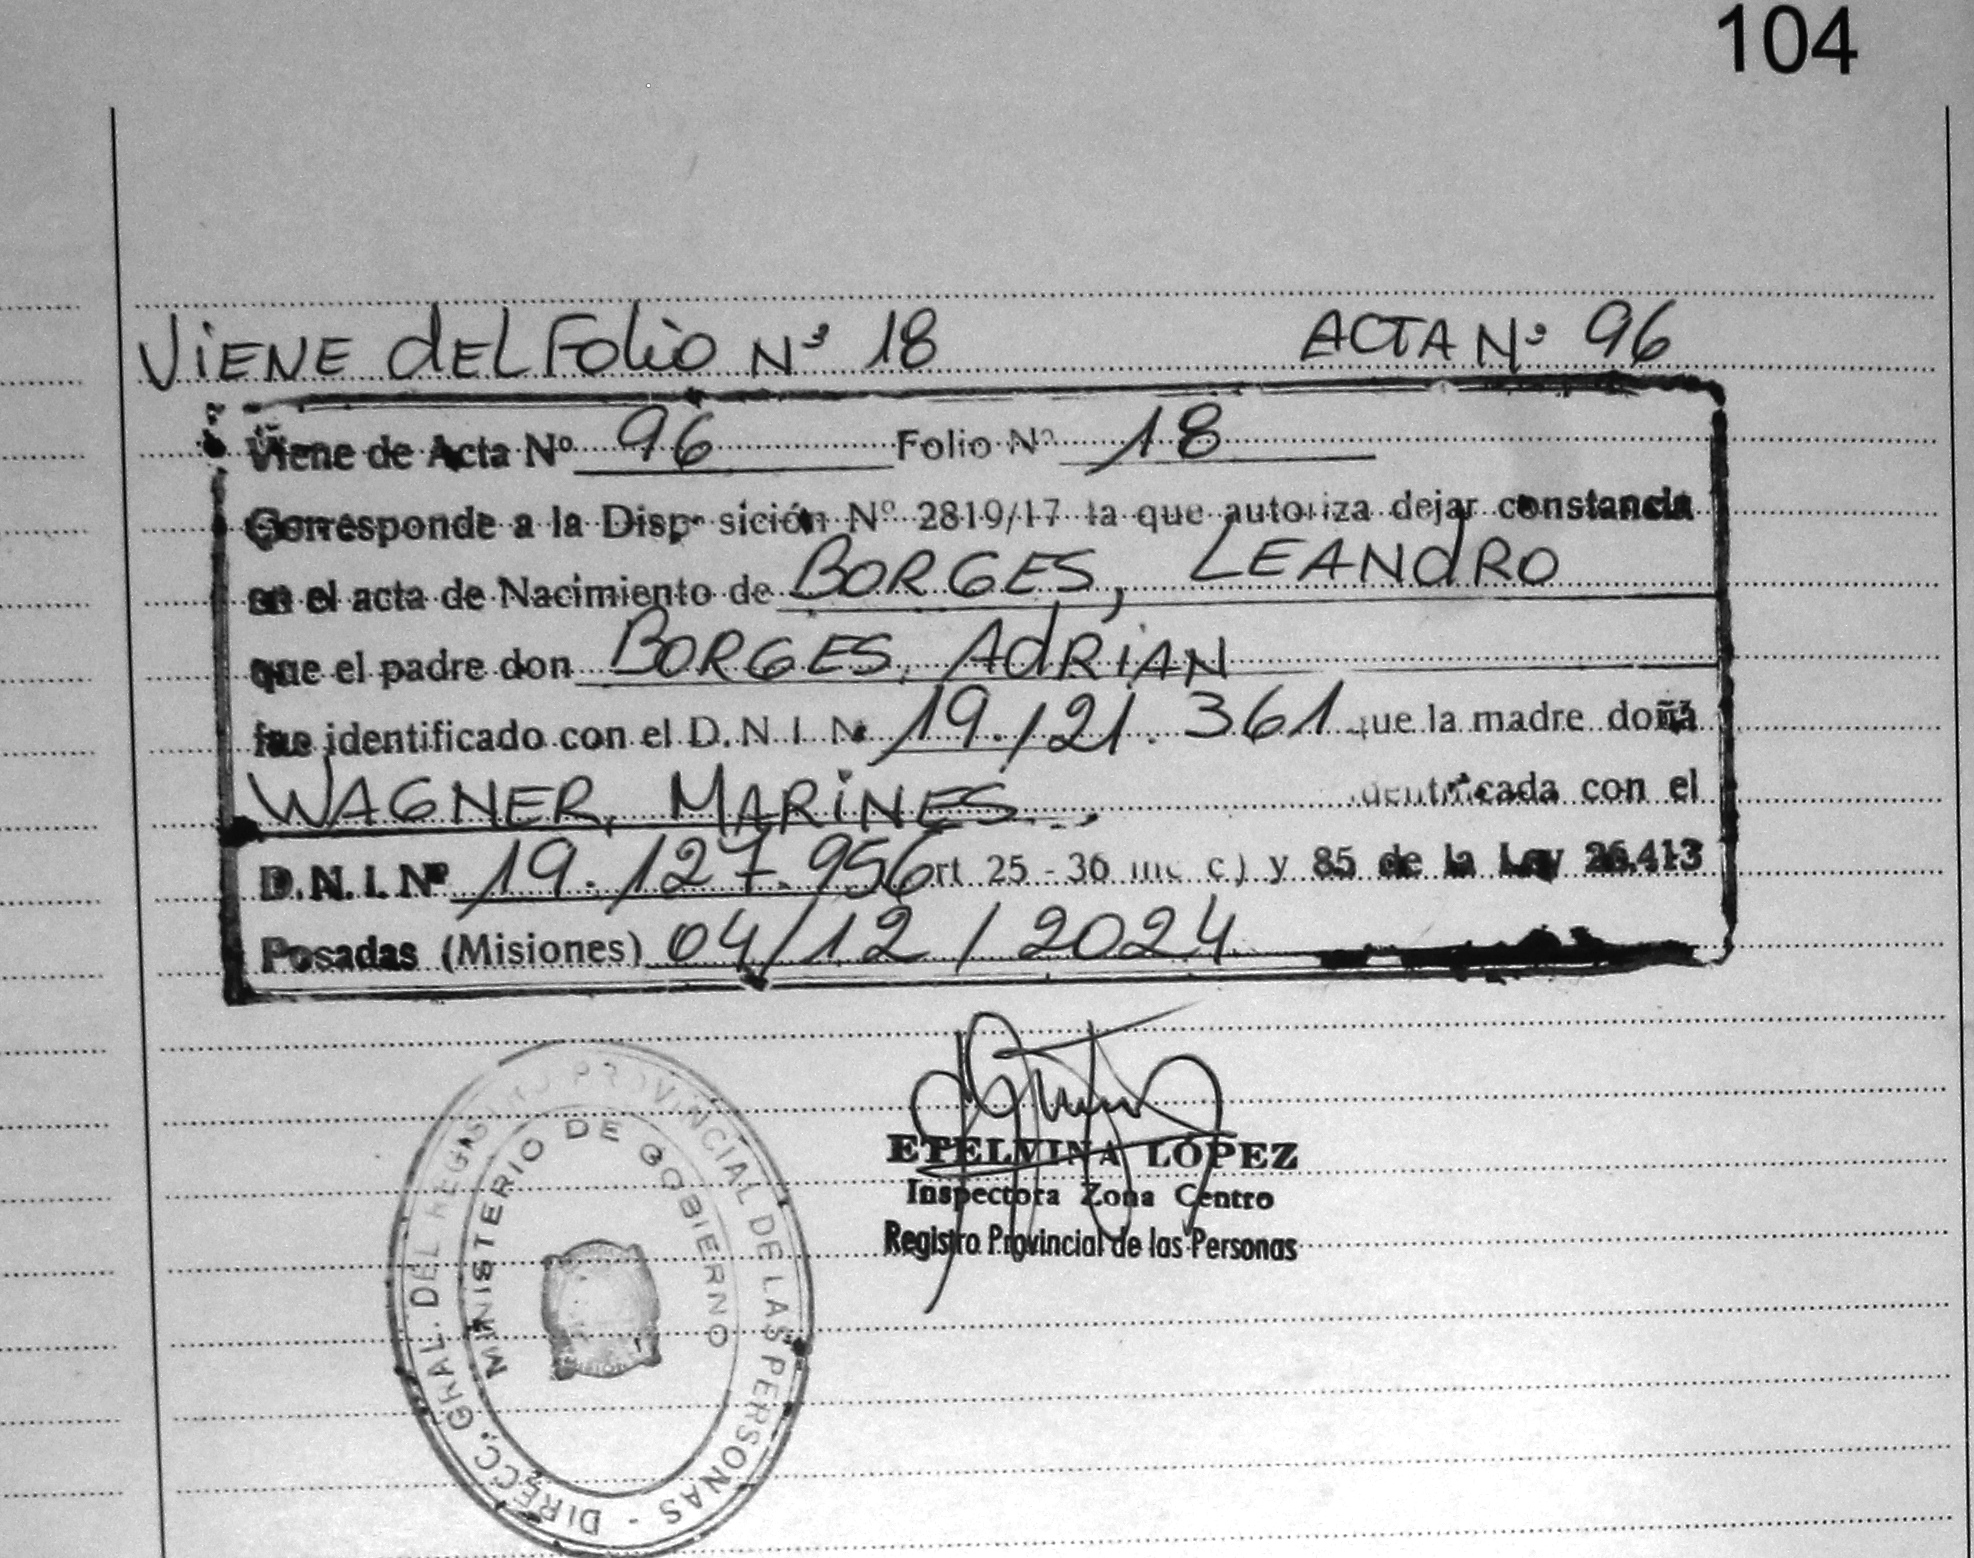 104
ViENE dEL FoLio Nº 18 ACTA Nº 96
Viene de Acta Nº 96 Folio Nº 18
Corresponde a la Disposición Nº 2819/17 la que autoriza dejar constancia
en el acta de Nacimiento de BORGES, LEANdRO
que el padre don BORGES, AdRiAN
fue identificado con el D.N.I Nº 19.121.361 que la madre doña
WAGNER, MARiNES, identificada con el
D.N.I. Nº 19.127.956 Art 25 - 36 inc c) y 85 de la Ley 26.413
Posadas (Misiones) 04/12/2024
ETELVINA LÓPEZ
Inspectora Zona Centro
Registro Provincial de las Personas
DIRECC. GRAL. DEL REGISTRO PROVINCIAL DE LAS PERSONAS -
MINISTERIO DE GOBIERNO